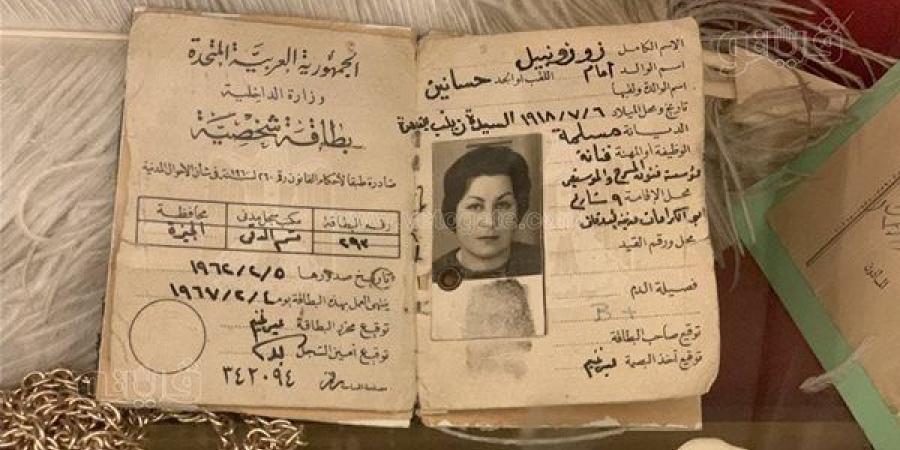 الجمهورية العربية المتحدة
وزارة الداخلية
بطاقة شخصية
صادرة طبقا لأحكام القانون رقم ٢٦٠ لسنة ١٩٦٠ في شأن الأحوال المدنية
رقم البطاقة مكتب سجل مدني محافظة
٢٩٢ قسم الدقى الجيزة
تاريخ صدورها ١٩٦٢/٢/٥
ينتهى العمل بهذه البطاقة يوم ١٩٦٧/٢/٤
توقيع محرر البطاقة
توقيع أمين السجل
٣٤٢٠٩٤
الاسم الكامل زوزو نبيل
اسم الوالد امام اللقب أو الجد حسانين
اسم الوالدة ولقبها
تاريخ ومحل الميلاد ١٩١٨/٧/٦ السيدة زينب
الديانة مسلمة
الوظيفة أو المهنة فنانة
مؤسسة فنون المسرح والموسيقى
محل الإقامة ٩ شارع
محل ورقم القيد
فصيلة الدم
B +
توقيع صاحب البطاقة
توقيع آخذ البصمة
فيتو
vetogate.com